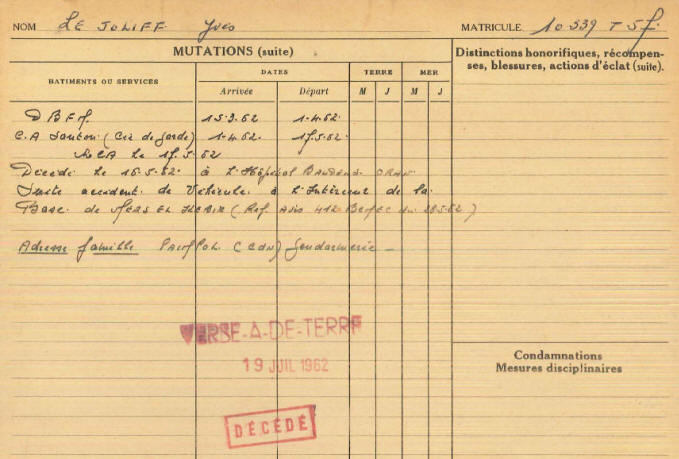 NOM LE JOLIFF Yves MATRICULE 10 539 T 5 f.
MUTATIONS (suite)
Distinctions honorifiques, récompen-
ses, blessures, actions d'éclat (suite).
BATIMENTS OU SERVICES DATES TERRE MER
Arrivée Départ M J M J
DBEM 15.3.62 1-4.62
C.A Santon (Cie de Garde) 1-4.62. 17.5.62.
CA le 17.5.62
Décédé le 16.5.62. à L'Hôpital BAUDENS ORAN
Suite accident de Véhicule à L'Intérieur de la
Base de MERS EL KEBIR (Ref Avis 412 du 28.5.62)
Adresse famille PAIMPOL (CDN) Gendarmerie -
VERSE-A-DE-TERRE
19 JUIL 1962
DÉCÉDÉ
Condamnations
Mesures disciplinaires